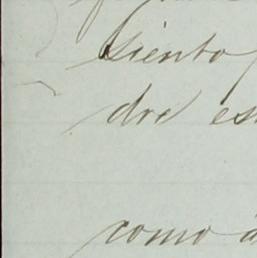 siento
dre es
como á